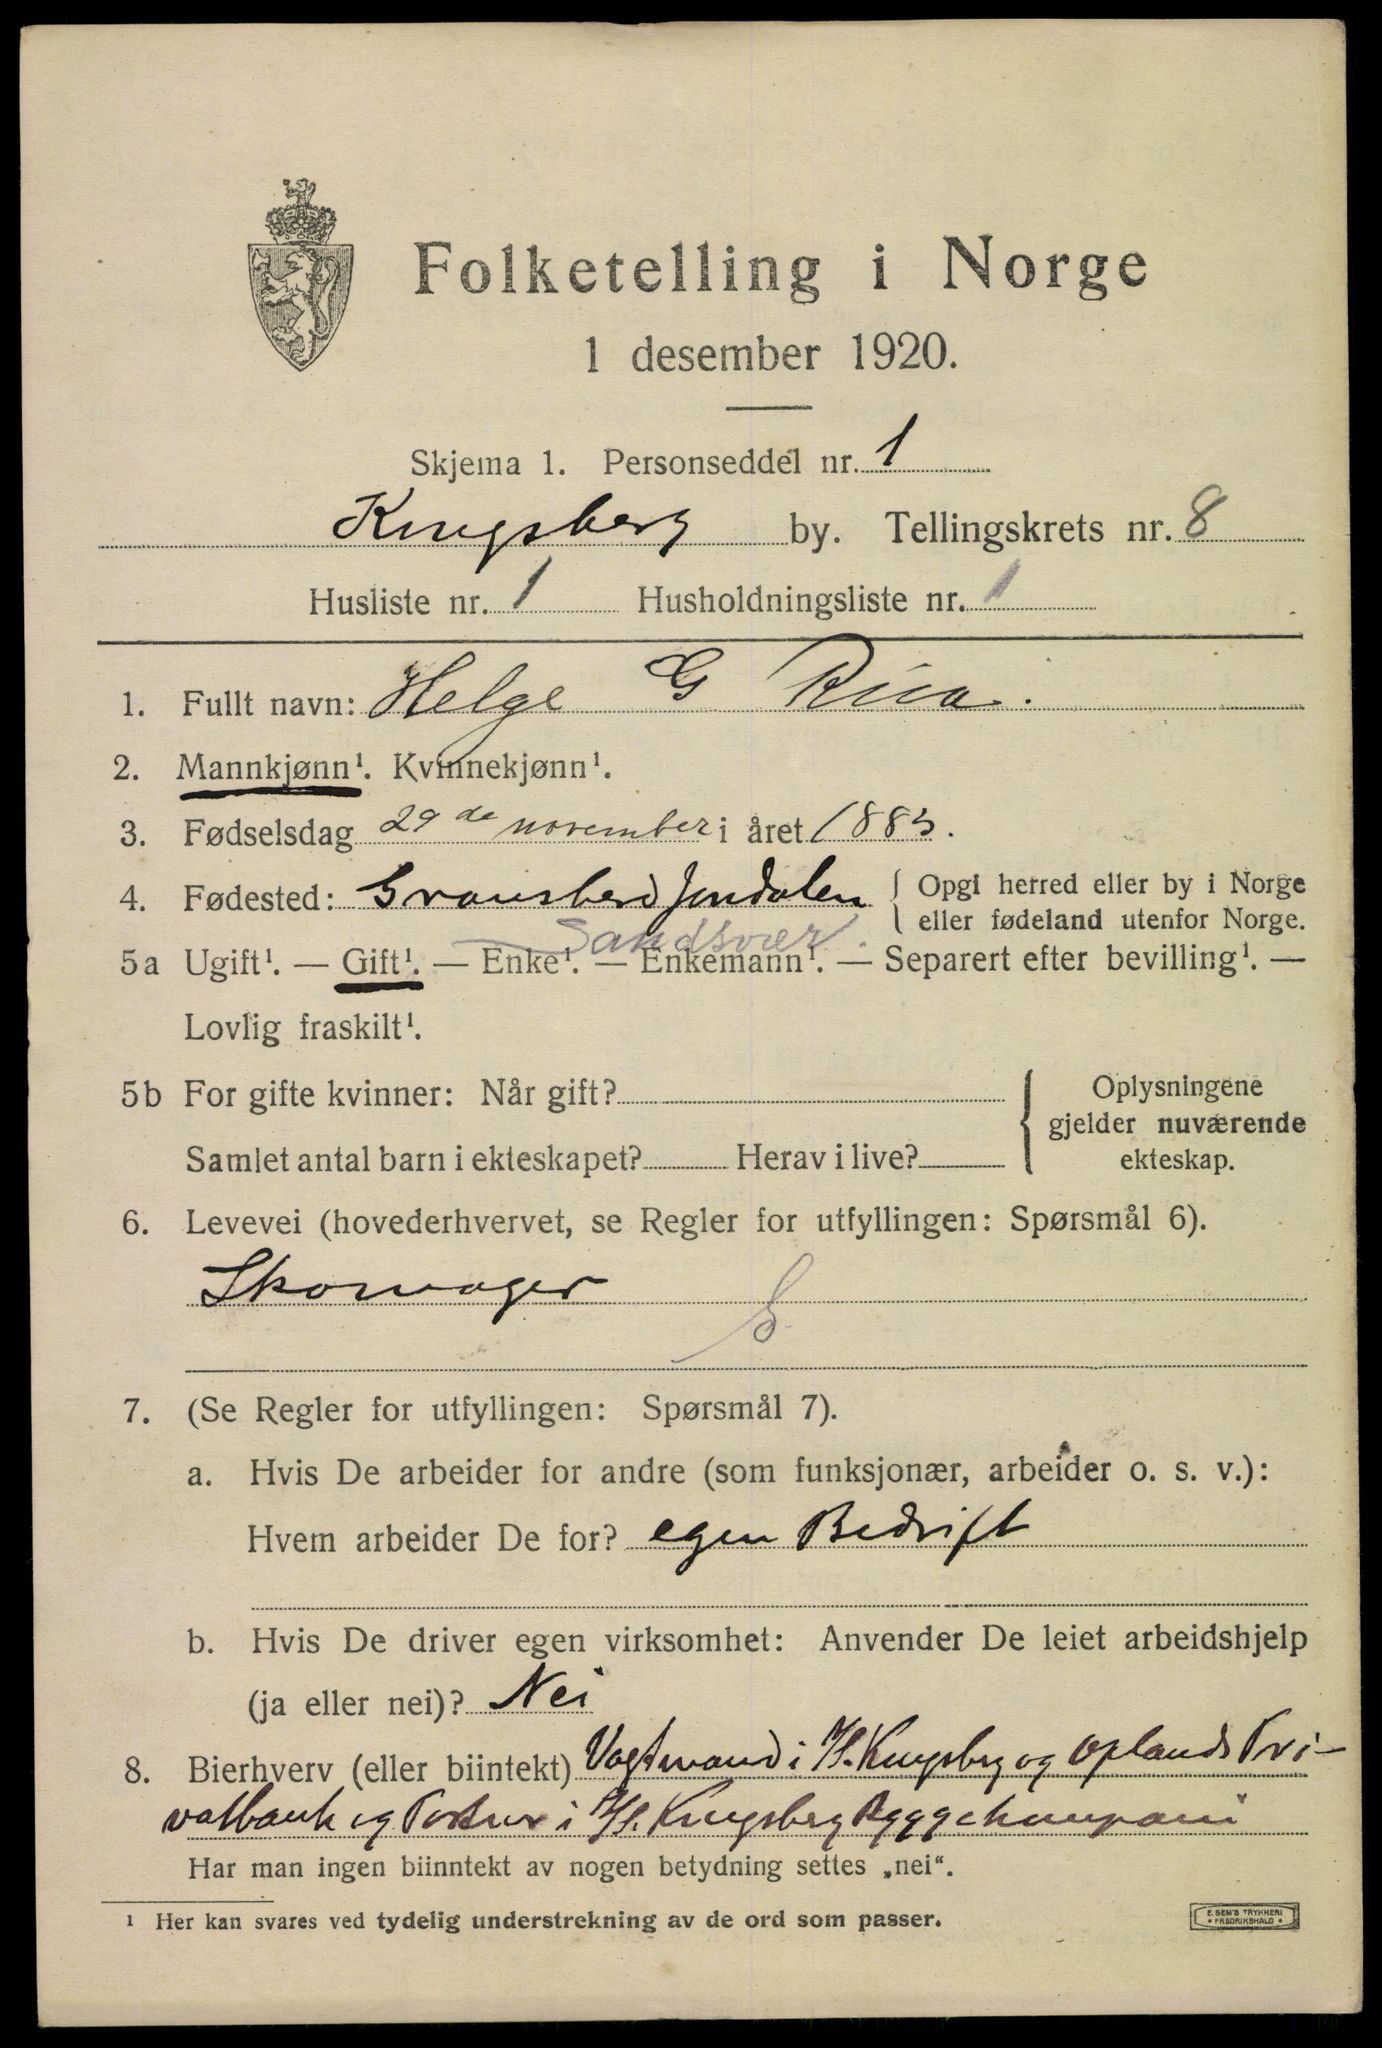 Folketelling i Norge
1 desember 1920.
Skjema 1. Personseddel nr. 1
Kongsberg by. Tellingskrets nr. 8
Husliste nr. 1 Husholdningsliste nr. 1
1. Fullt navn: Helge G
2. Mannkjønn¹. Kvinnekjønn¹.
3. Fødselsdag 29de november i året 1883.
4. Fødested: Jondalen { Opgi herred eller by i Norge
eller fødeland utenfor Norge.
Sandsvær.
5a Ugift¹. — Gift¹. — Enke¹. — Enkemann¹. — Separert efter bevilling¹. —
Lovlig fraskilt¹.
5b For gifte kvinner: Når gift? { Oplysningene
gjelder nuværende
Samlet antal barn i ekteskapet? Herav i live? ekteskap.
6. Levevei (hovederhvervet, se Regler for utfyllingen: Spørsmål 6).
Skomager S.
7. (Se Regler for utfyllingen: Spørsmål 7).
a. Hvis De arbeider for andre (som funksjonær, arbeider o. s. v.):
Hvem arbeider De for? egen Bedrift
b. Hvis De driver egen virksomhet: Anvender De leiet arbeidshjelp
(ja eller nei)? Nei
8. Bierhverv (eller biintekt) Vagtmand i Kongsberg og Oplands Pri-
vatbank og i Kongsberg Byggekompani
Har man ingen biinntekt av nogen betydning settes „nei“.
¹ Her kan svares ved tydelig understrekning av de ord som passer.
E. SEM'S TRYKKERI
• FREDRIKSHALD •